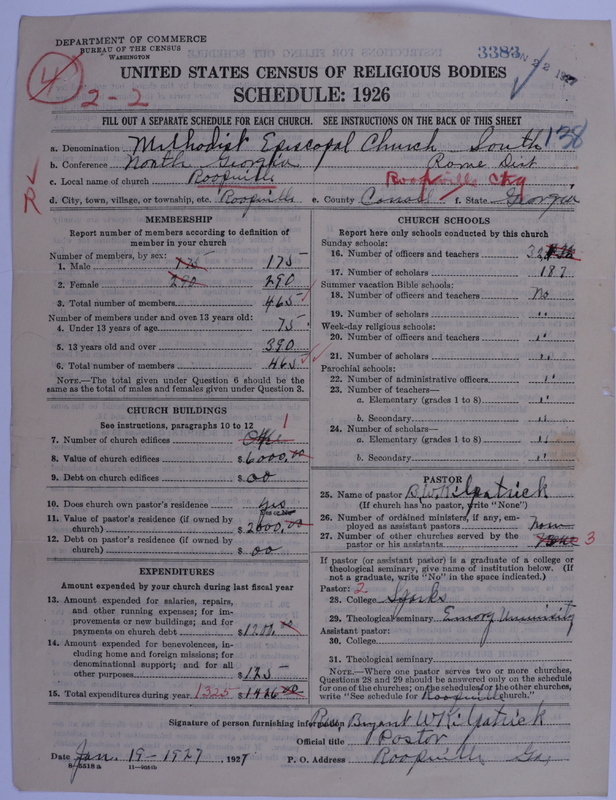 DEPARTMENT OF COMMERCE
BUREAU OF THE CENSUS
WASHINGTON
3383
4
2-2
UNITED STATES CENSUS OF RELIGIOUS BODIES
SCHEDULE: 1926
FILL OUT A SEPARATE SCHEDULE FOR EACH CHURCH. SEE INSTRUCTIONS ON THE BACK OF THIS SHEET
a. Denomination Methodist Episcopal Church South 138
b. Conference North Georgia Rome Dist
c. Local name of church Roopville Roopville Chg
R
d. City, town, village, or township, etc. Roopville e. County Carroll f. State Georgia
MEMBERSHIP
Report number of members according to definition of
member in your church
Number of members, by sex:
1. Male 175 175
2. Female 290 290
3. Total number of members 465
Number of members under and over 13 years old:
4. Under 13 years of age 75
5. 13 years old and over 390
6. Total number of members 465
NOTE.—The total given under Question 6 should be the
same as the total of males and females given under Question 3.
CHURCH BUILDINGS
See instructions, paragraphs 10 to 12
7. Number of church edifices One 1
8. Value of church edifices $ 6000.00
9. Debt on church edifices $ 00
10. Does church own pastor's residence yes
Yes or No
11. Value of pastor's residence (if owned by
church) $ 2000.00
12. Debt on pastor's residence (if owned by
church) $ 00
EXPENDITURES
Amount expended by your church during last fiscal year
13. Amount expended for salaries, repairs,
and other running expenses; for im-
provements or new buildings; and for
payments on church debt $
14. Amount expended for benevolences, in-
cluding home and foreign missions; for
denominational support; and for all
other purposes $ 125
15. Total expenditures during year 1325 $
CHURCH SCHOOLS
Report here only schools conducted by this church
Sunday schools:
16. Number of officers and teachers 32
17. Number of scholars 187
Summer vacation Bible schools:
18. Number of officers and teachers No
19. Number of scholars "
Week-day religious schools:
20. Number of officers and teachers "
21. Number of scholars "
Parochial schools:
22. Number of administrative officers "
23. Number of teachers—
a. Elementary (grades 1 to 8) "
b. Secondary "
24. Number of scholars—
a. Elementary (grades 1 to 8) "
b. Secondary "
PASTOR
25. Name of pastor B.W. Kilpatrick
(If church has no pastor, write "None")
26. Number of ordained ministers, if any, em-
ployed as assistant pastors None
27. Number of other churches served by the
pastor or his assistants 3
If pastor (or assistant pastor) is a graduate of a college or
theological seminary, give name of institution below. (If
not a graduate, write "No" in the space indicated.)
Pastor: 2
28. College Sparks
29. Theological seminary Emory University
Assistant pastor:
30. College
31. Theological seminary
NOTE.—Where one pastor serves two or more churches,
Questions 28 and 29 should be answered only on the schedule
for one of the churches; on the schedules for the other churches,
write "See schedule for Roopville church."
Signature of person furnishing information Bryant W Kilpatrick
Official title Pastor
Date Jan. 19-1927, 1927 P. O. Address Roopville, Ga,
8-5518 a